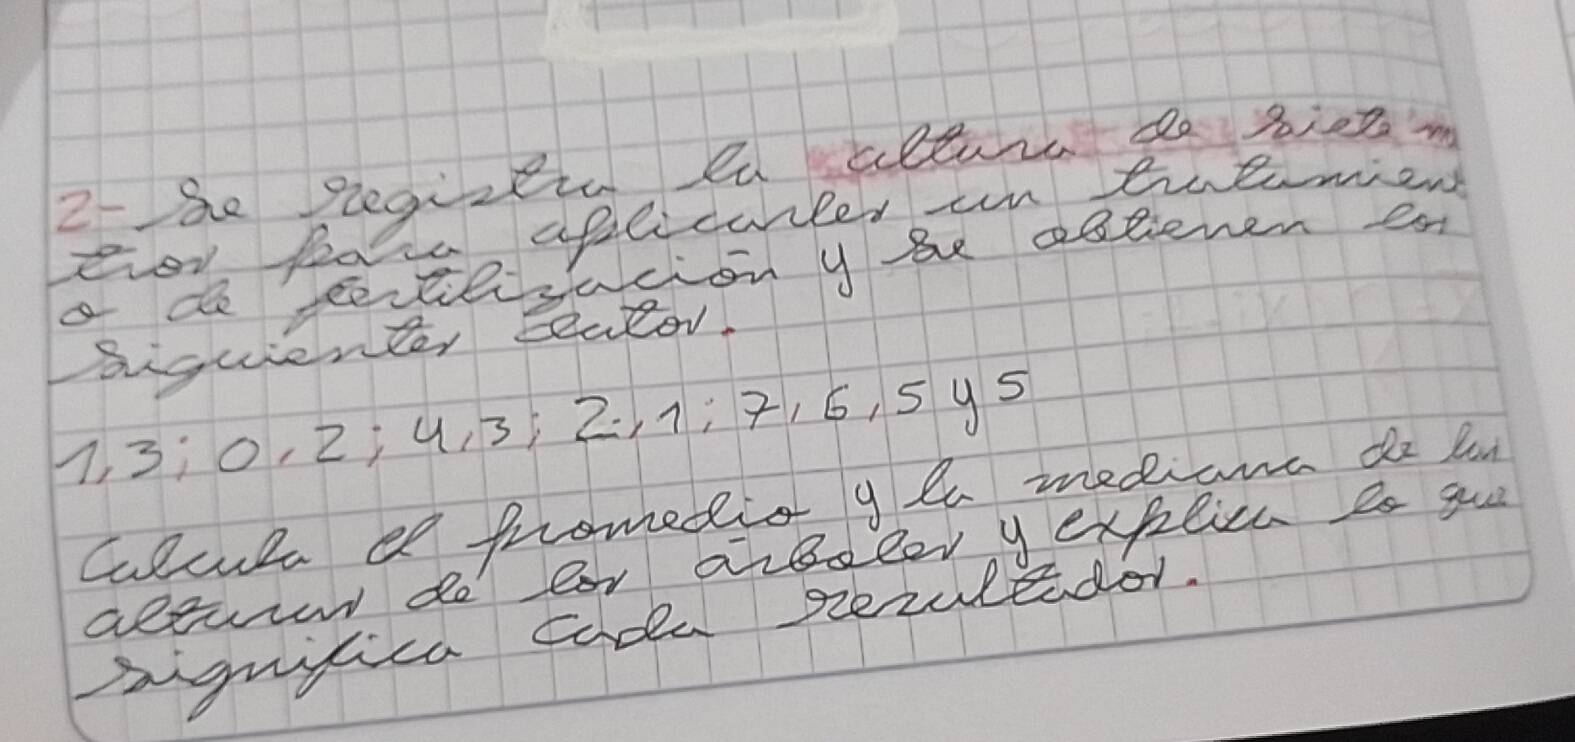 2- Se registra la altura de siete m
tros para aplicarles un tratamient
o de fertilización y se obtienen los
siguientes datos.
1,3; 0,2; 4,3; 2,1; 7, 6, 5 y 5
Calcula el promedio y la mediana de las
alturas de los árboles y explica lo que
significa cada rezultados.